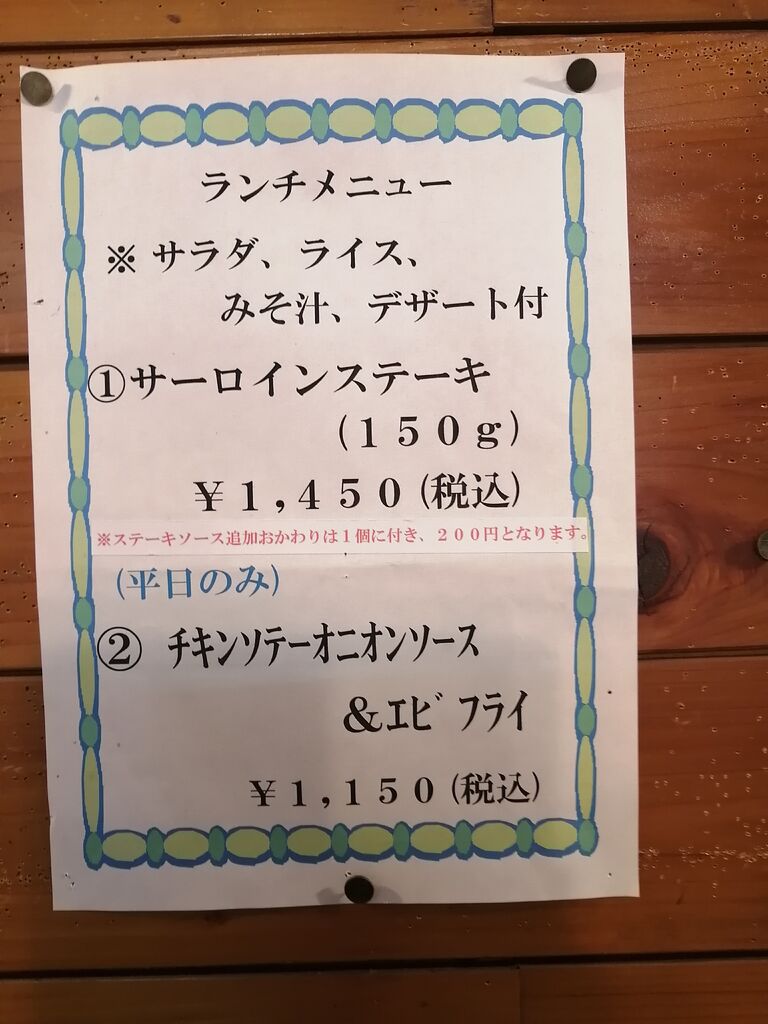 ランチメニュー
※サラダ、ライス、
みそ汁、デザート付
①サーロインステーキ
(150g)
¥1,450(税込)
※ステーキソース追加おかわりは1個に付き、200円となります。
(平日のみ)
② チキンソテーオニオンソース
&エビフライ
¥1,150(税込)